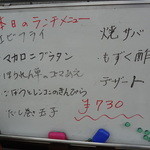 本日のランチメニュー
エビフライ
マカロニグラタン
ほうれん草のゴマあえ
ごぼうとレンコンのきんぴら
だし巻玉子
焼サバ
もずく酢
デザート
¥730